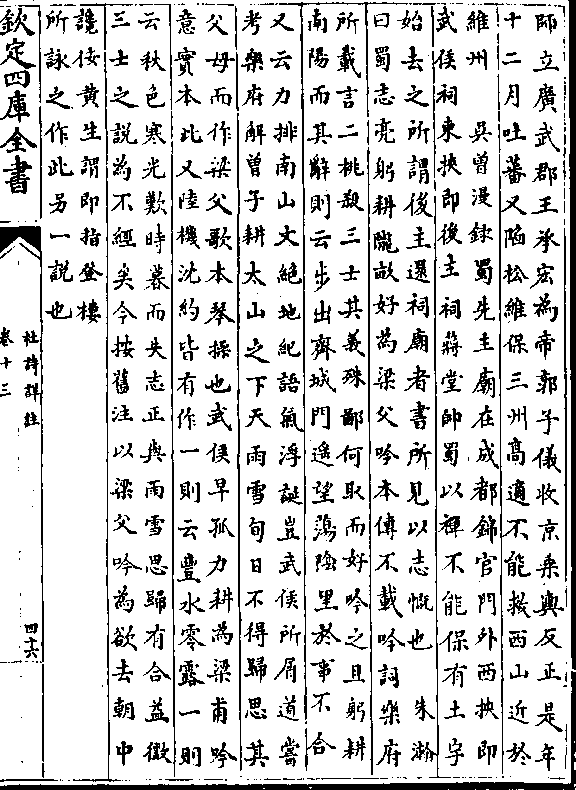 師立廣武郡王承宏為帝郭子儀收京乗輿反正是年
十二月吐蕃又陥松維保三州髙適不能救西山近於
維州　吳曾漫錄蜀先主廟在成都錦官門外西挾即
武侯祠東挾即後主祠蔣堂帥蜀以禪不能保有土字
始去之所謂後主還祠廟者書所見以志慨也　朱瀚
曰蜀志亮躬耕隴畝好為梁父吟本傳不載吟詞樂府
所載言二桃殺三士其義殊鄙何取而好吟之且躬耕
南陽而其辭則云步出齊城門遥望蕩隂里於事不合
又云力排南山文絶地紀語氣浮誕豈武侯所屑道嘗
考樂府解曽子耕太山之下天雨雪旬日不得歸思其
父母而作梁父歌本琴操也武侯早孤力耕為梁甫吟
意實本此又陸機沈約皆有作一則云豐水零露一則
云秋色寒光歎時暮而失志正與雨雪思歸有合益徴
三士之說為不經矣今按舊注以梁父吟為欲去朝中
讒佞黄生謂即指登樓
所詠之作此另一說也
欽定四庫全書
杜詩詳註
卷十三
四十六